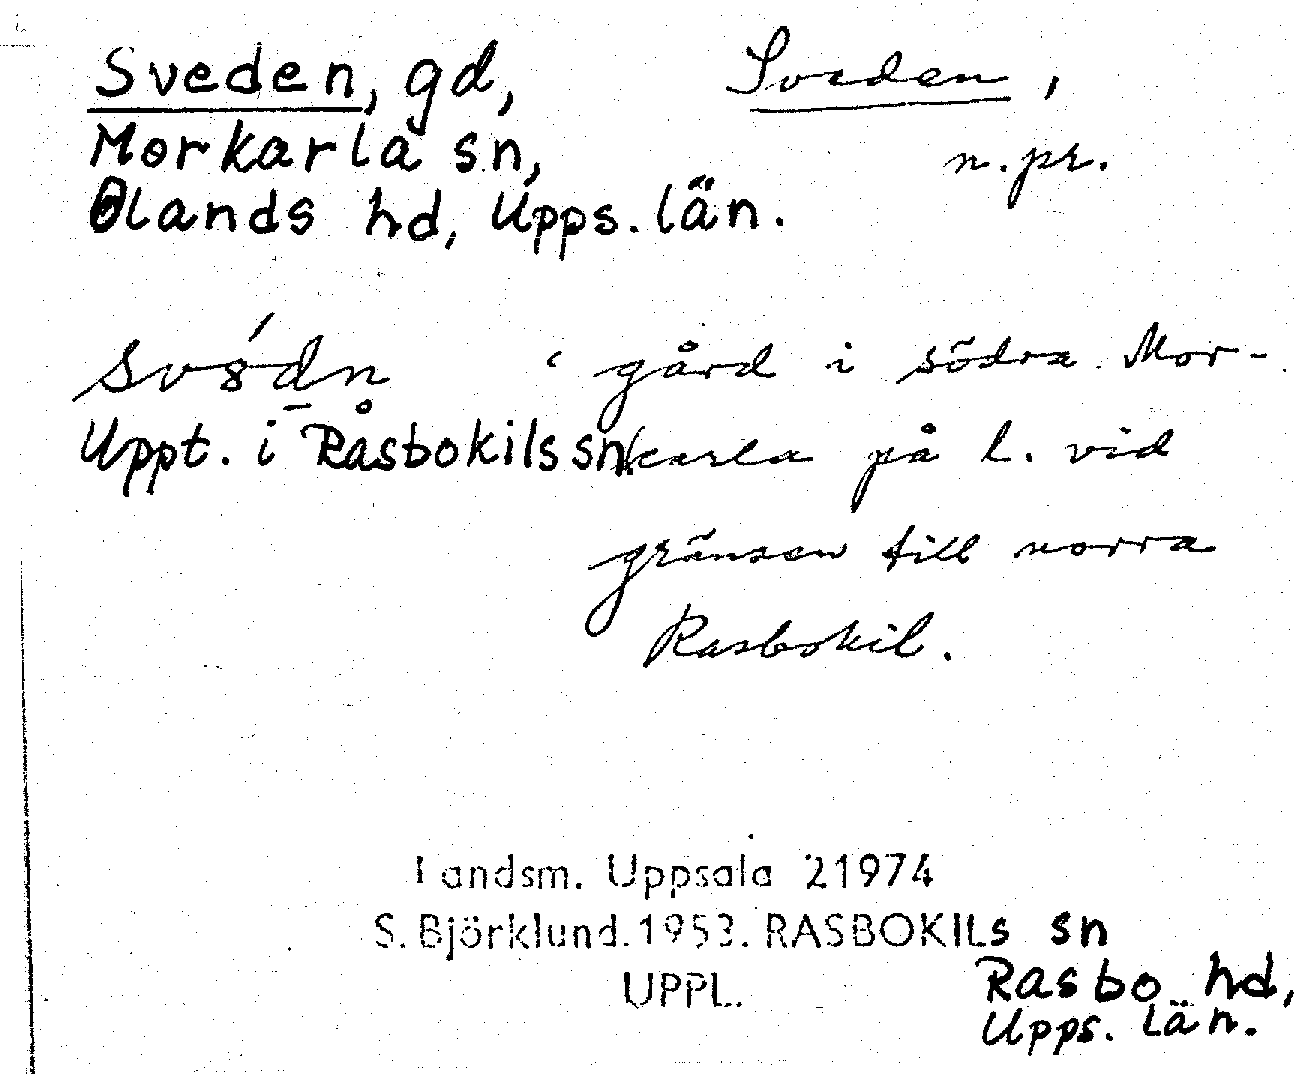 Sveden, gd,
Morkarla sn,
Ølands hd, Upps. län.
Sveden,
n. pr.
Uppt. i Rasbokils sn.
gård i södra Mor-
karla på l. vid
gränsen till norra
Rasbokil.
Landsm. Uppsala 21974
S. Björklund. 1953. RASBOKILs sn
UPPL.
Rasbo hd,
Upps. län.